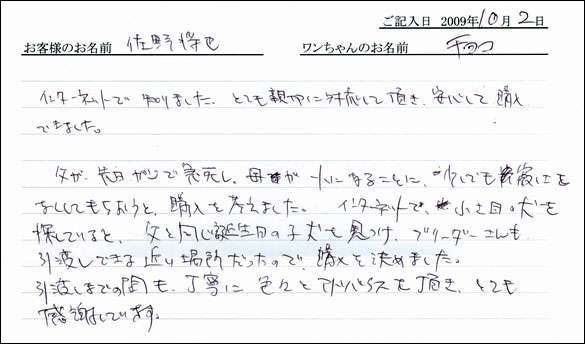 ご記入日 2009年10月2日
お客様のお名前 佐野将也 ワンちゃんのお名前 チョコ
インターネットで知りました。とても親切に対応して頂き、安心して購入
できました。
父が、先日ガンで急死し、母が一人になることに、少しでも
をしてもらおうと、購入を考えました。インターネットで、小さ目の犬を
探していると、父と同じ誕生日の子犬を見つけ、ブリーダーさんも
引渡しできる近い場所だったので、購入を決めました。
引渡しまでの間も、丁寧に色々とアドバイスを頂き、とても
感謝しています。